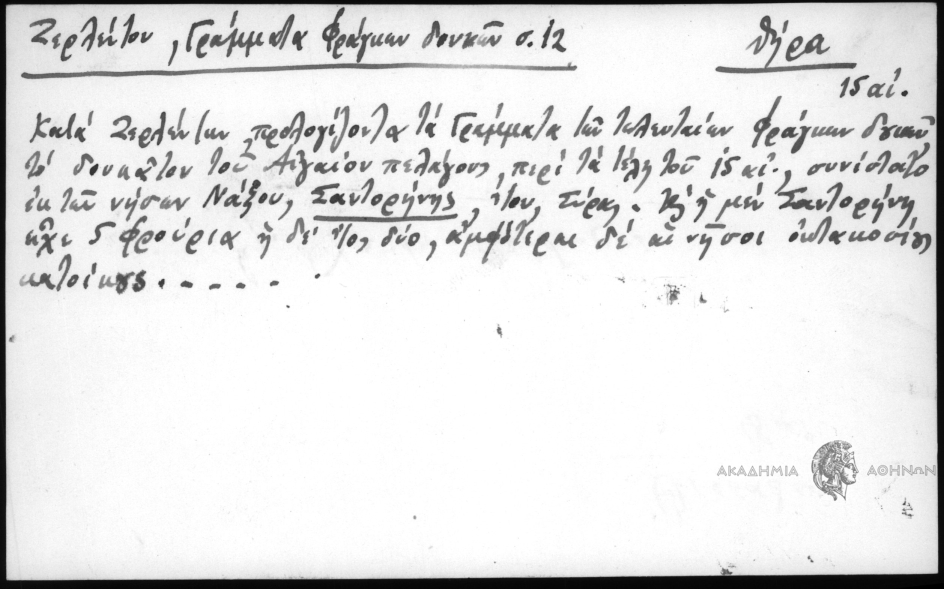 Ζερλέντου, Γράμματα Φράγκων δουκῶν σ. 12
Θήρα
15 αἰ.
Κατά Ζερλέντην, προλογίζοντα τά Γράμματα τῶν τελευταίων Φράγκων δουκῶν,
τό δουκᾶτον τοῦ Αἰγαίου πελάγους, περί τά τέλη τοῦ 15 αἰ., συνίστατο
ἐκ τῶν νήσων Νάξου, Σαντορήνης, Ἴου, Σύρας. Καί ἡ μέν Σαντορήνη
εἶχε 5 φρούρια ἡ δέ Ἴος δύο, ἀμφότεραι δέ αἱ νῆσοι ὀκτακοσίους
κατοίκους. - - - - - .
ΑΚΑΔΗΜΙΑ ΑΘΗΝΩΝ